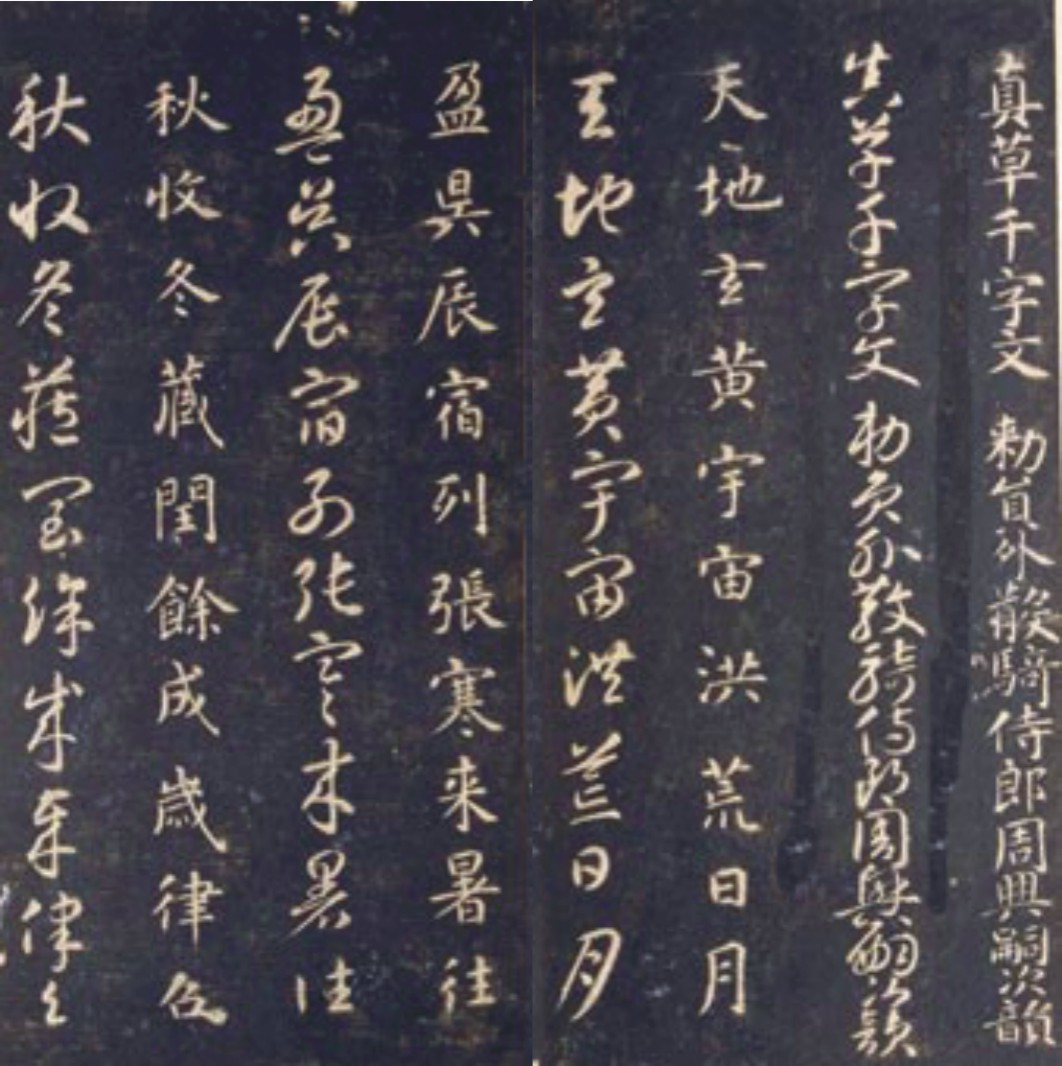 真草千字文 勅員外散騎侍郎周興嗣次韻
真草千字文勅員外散騎侍郎周興嗣次韻
天地玄黄宇宙洪荒日月
天地玄黄宇宙洪荒日月
盈昃辰宿列張寒来暑往
盈昃辰宿列張寒来暑往
秋收冬藏閏餘成歲律呂
秋收冬藏閏餘成歲律呂